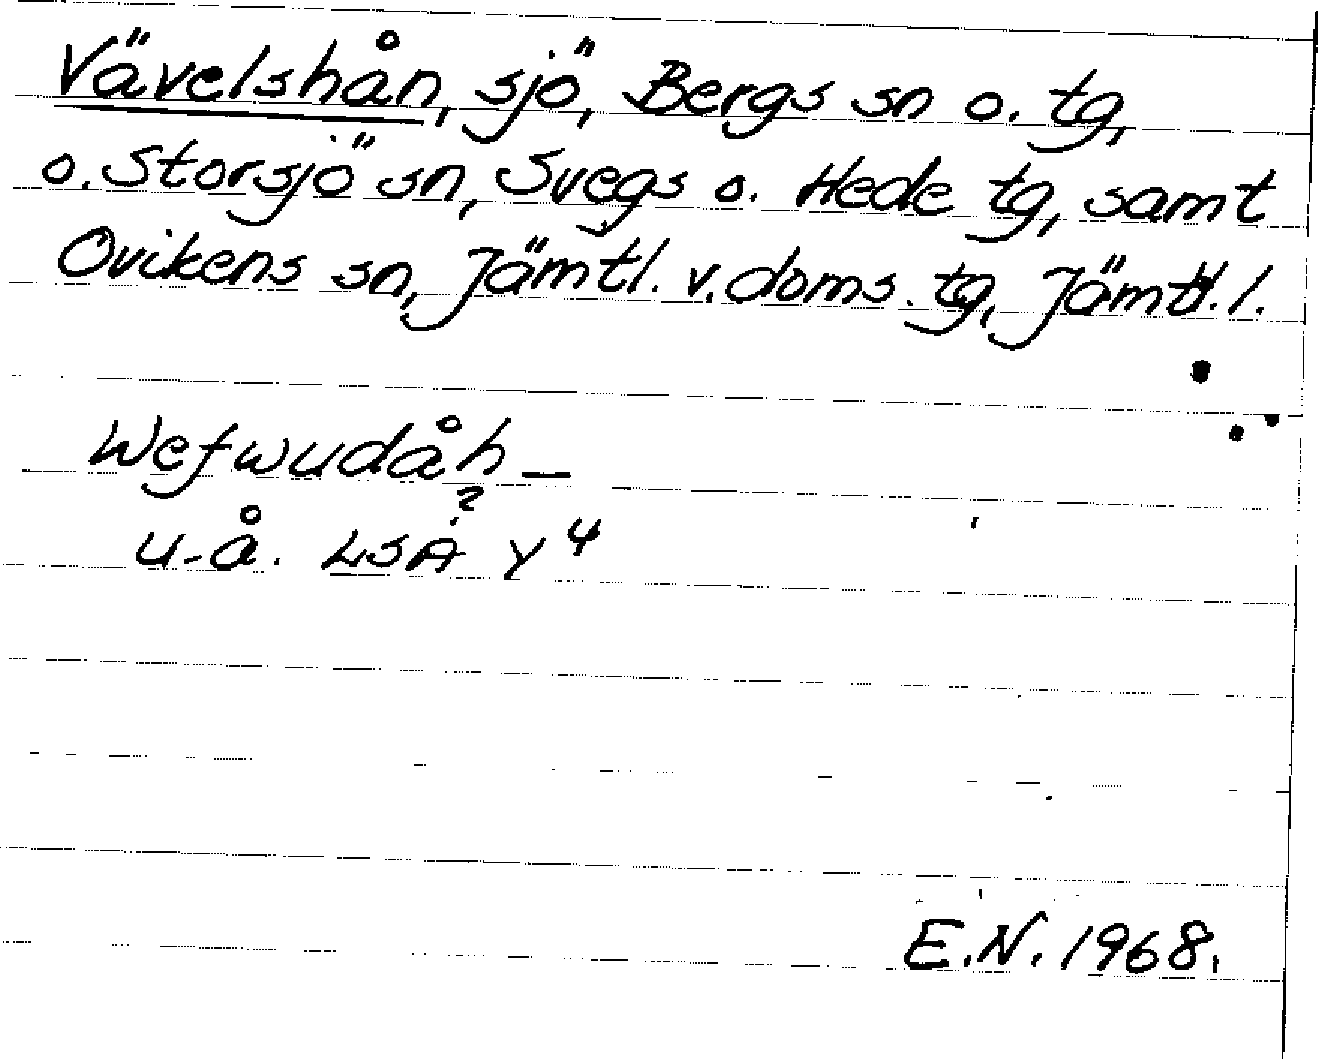 Vävelshån, sjö, Bergs sn o. tg,
o. Storsjö sn, Svegs o. Hede tg, samt
Ovikens sn, Jämtl. v. doms. tg, Jämtl. l.
Wefwudåh –
u. å. LSA? Y 4
E.N. 1968.